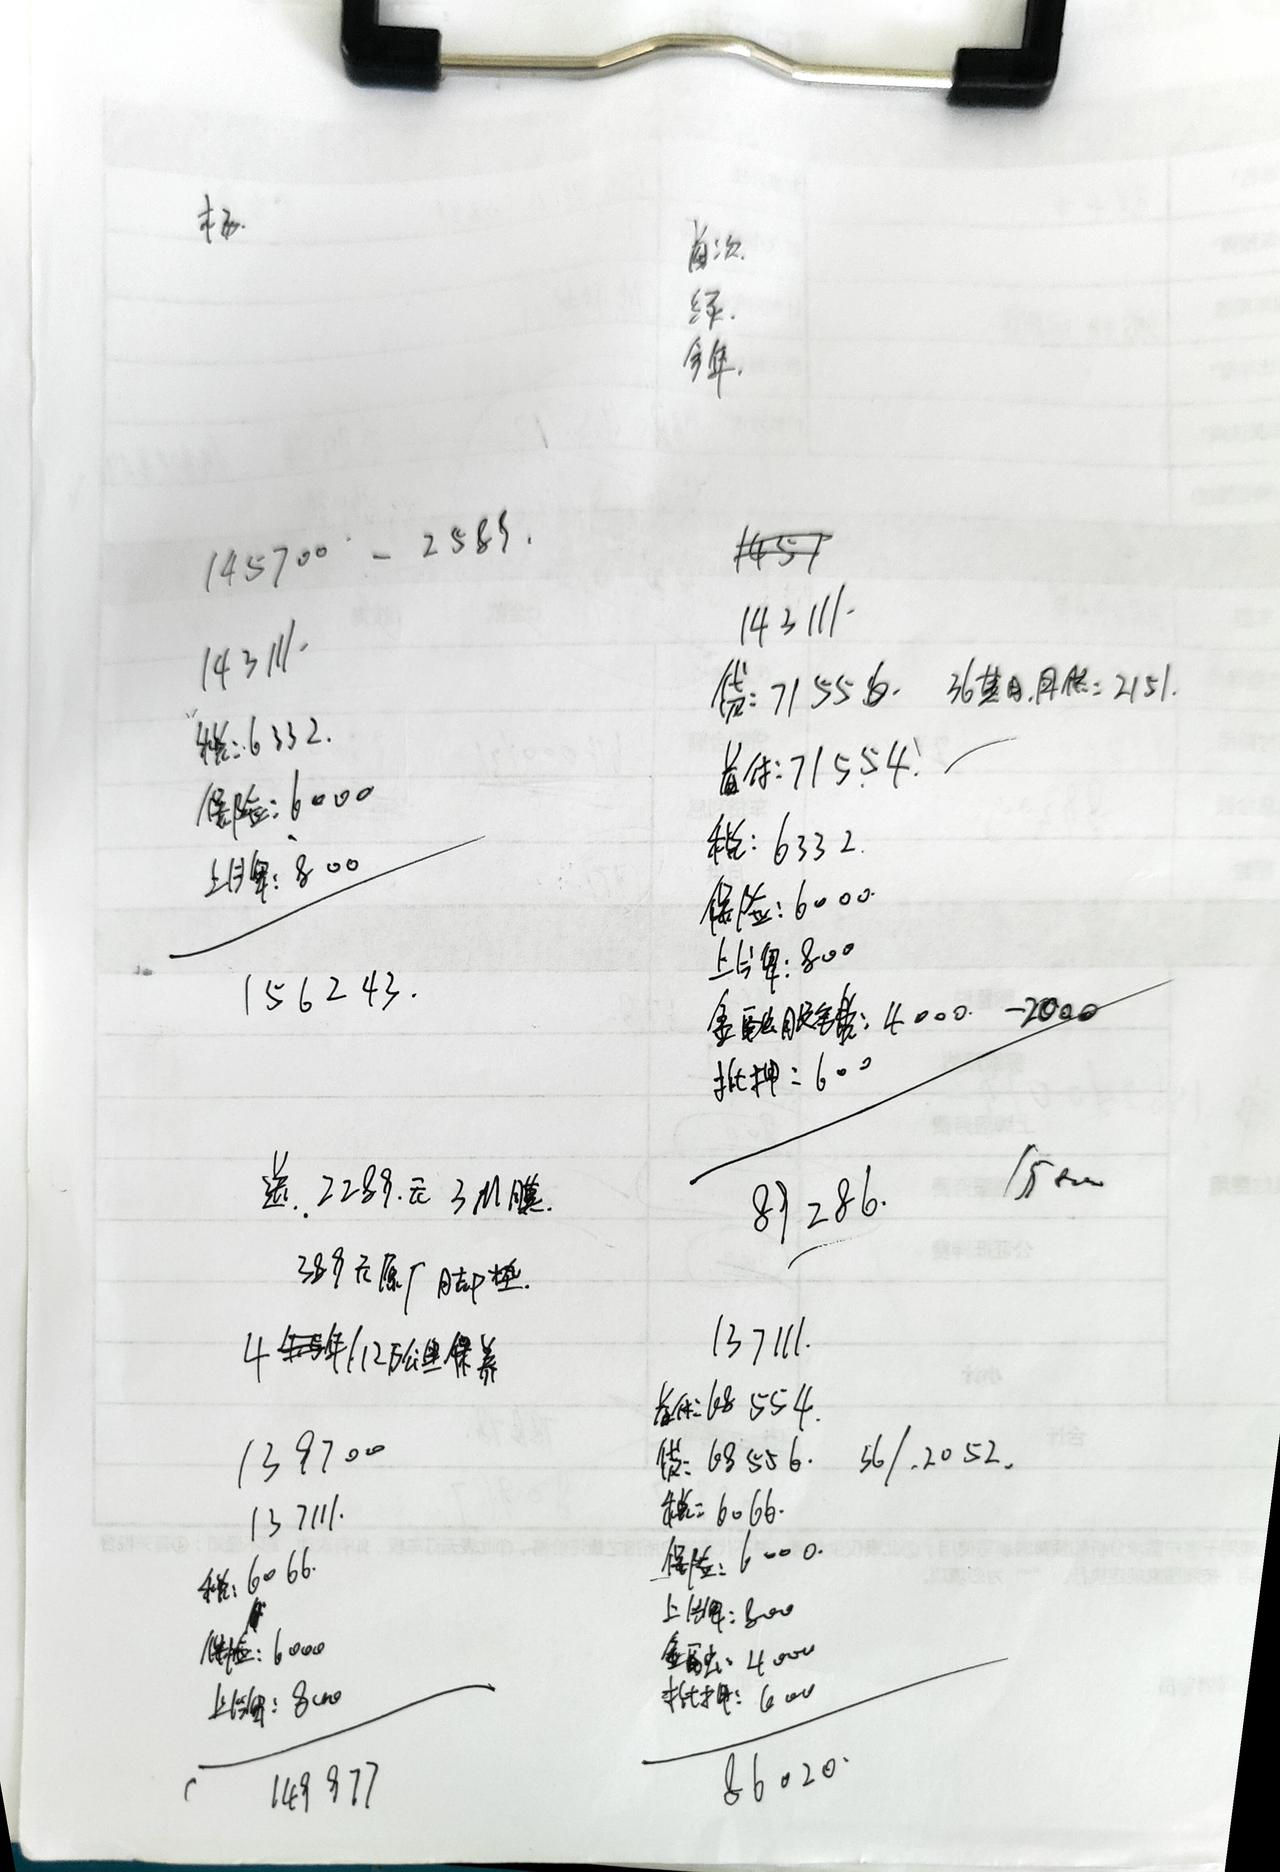 首次.
全年.
145700 - 2589.
143111.
税:6332.
保险:6000
上牌:800
156243.
送. 2289.元 3M膜.
389元原厂脚垫.
4年/12万公里保养
139700
137111.
税:6066.
保险:6000
上牌:800
149977
1457
143111.
贷:71556. 36期.月供:2151.
首付:71554.
税:6332.
保险:6000.
上牌:800
金融服务费:4000. -2000
抵押:600
89286.
137111.
首付:68554.
贷:68556. 36/.2052.
税:6066.
保险:6000.
上牌:800
金融:4000
抵押:600
86020.